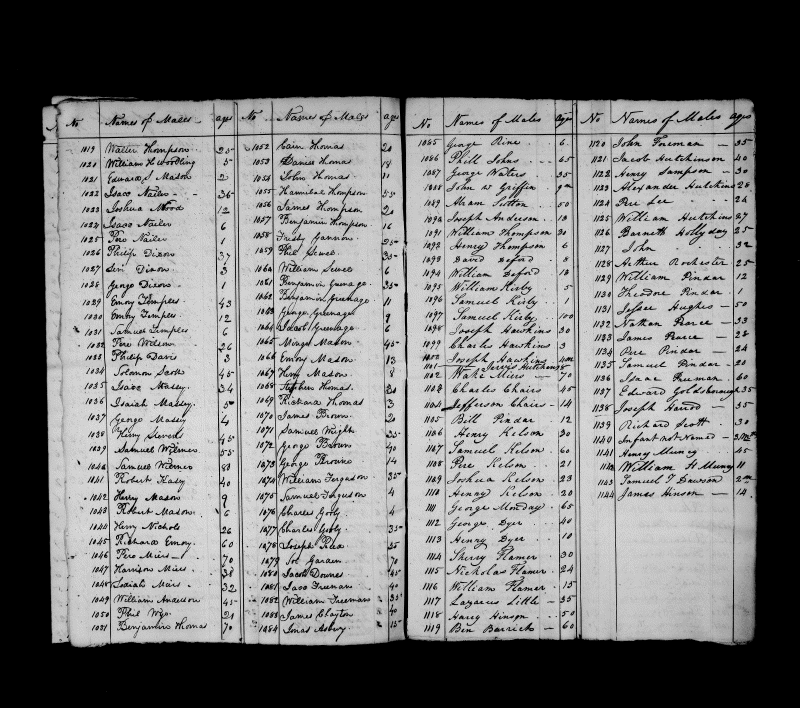 No Names of Males ages
1019 Walter Thompson 25
1020 William H Woodling 5
1021 Edward S Mason 2
1022 Isaac Nailer 36
1023 Joshua Wood 12
1024 Isaac Nailer 6
1025 Pere Nailer 1
1026 Philip Dixon 37
1027 Dixon 3
1028 George Dixon 1
1029 Emory Temples 43
1030 Emory Temples 12
1031 Samuel Temples 6
1032 Pere Wilson 26
1033 Philip Davis 3
1034 Solomon Scott 45
1035 Isaac Massey 34
1036 Isaiah Massey 5
1037 George Massey 4
1038 Henry Stevens 45
1039 Samuel Wilmer 55
1040 Samuel Wilmer 80
1041 Robert Kady 40
1042 Henry Mason 9
1043 Robert Mason 6
1044 Henry Nichols 26
1045 Richard Emory 60
1046 Pere Miers 70
1047 Harrison Miers 38
1048 Josiah Miers 32
1049 William Anderson 45
1050 Phil 21
1051 Benjamin Thomas 70
No Names of Males ages
1052 Cain Thomas 20
1053 Daniel Thomas 18
1054 John Thomas 11
1055 Hannibal Thompson 55
1056 James Thompson 20
1057 Benjamin Thompson 16
1058 Frisby Gannon 25
1059 Phil Sewel 35
1060 William Sewel 6
1061 Benjamin Grenage 35
1062 Benjamin Greenage 11
1063 George Greenage 9
1064 Greenage 6
1065 Mingo Mason 45
1066 Emory Mason 13
1067 Henry Mason 8
1068 Stephen Thomas 20
1069 Richard Thomas 3
1070 James Brown 20
1071 Samuel Wright 35
1072 George Brown 40
1073 George Browne 14
1074 William Ferguson 35
1075 Samuel Ferguson 4
1076 Charles 4
1077 Charles 35
1078 Joseph Reed 25
1079 Sol Garden 70
1080 Jacob Downes 45
1081 Isaac Freeman 40
1082 William Freeman 35
1083 James Clayton 40
1084 Jonas Asbury 15
No Names of Males Ages
1085 George Rine 6
1086 Phill Johns 65
1087 George Waters 35
1088 John W Griffin 9m
1089 Aram Sotton 50
1090 Joseph Anderson 18
1091 William Thompson 30
1092 Henry Thompson 6
1093 David Deford 8
1094 William Deford 12
1095 William Kirby 5
1096 Samuel Kirby 1
1097 Samuel Kirby 100
1098 Joseph Hawkins 30
1099 Charles Hawkins 3
1100 Joseph Hawkins 4m
1101 Jerrys Hutchins
1102 Wake Miers 70
1103 Charles Chairs 45
1104 Jefferson Chairs 14
1105 Bill Pindar 12
1106 Henry Kelson 30
1107 Samuel Kelson 60
1108 Pere Kelson 21
1109 Joshua Kelson 23
1110 Henry Kelson 20
1111 George Monday 65
1112 George Dyer 40
1113 Henry Dyer 10
1114 Sherry Flamer 30
1115 Nicholas Flamer 24
1116 William Flamer 15
1117 Lazarus Little 35
1118 Harry Hinson 50
1119 Ben Barrick 60
No Names of Males ages
1120 John Foreman 35
1121 Jacob Hutchinson 40
1122 Henry Sampson 30
1123 Alexander Hutchins 28
1124 Pere Lee 24
1125 William Hutchins 27
1126 Barnett Hollyday 25
1127 John 32
1128 Arthur Rochester 25
1129 William Pindar 12
1130 Theodore Pindar 1
1131 Jesse Hughes 50
1132 Nathan Pearce 33
1133 James Pearce 28
1134 Pere Pindar 24
1135 Samuel Pindar 20
1136 Isaac Freeman 60
1137 Edward Goldsborough 35
1138 Joseph Harrod 35
1139 Richard Scott 30
1140 Infant not Named 3m
1141 Henry Muncy 45
1142 William H Muncy 11
1143 Samuel T Dawson 2m
1144 James Hinson 14